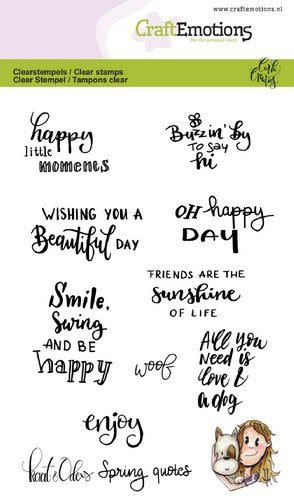 www.craftemotions.nl
CraftEmotions
for the personal touch
Clearstempels / Clear stamps
Clear Stempel / Tampons clear
happy
little
moments
Buzzin' by
to say
hi
WISHING YOU A
Beautiful DAY
OH happy
DAY
FRIENDS ARE THE
Sunshine
OF LIFE
Smile,
Swing
AND BE
happy
woof
All you
need is
love &
a dog
enjoy
Spring quotes